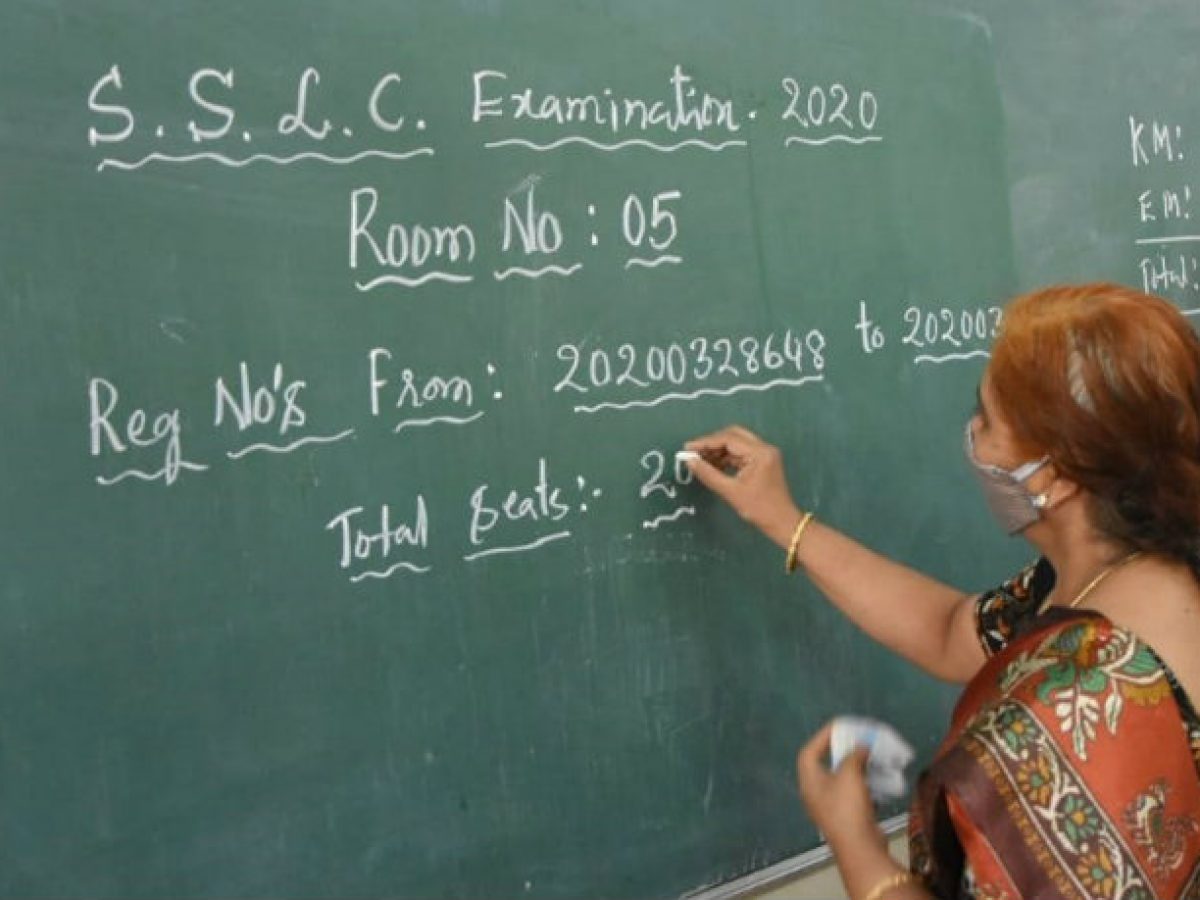 S.S.L.C. Examination. 2020
Room No : 05
Reg No's From : 20200328648 to 202003
Total Seats:- 20
KM:
EM:
Total: